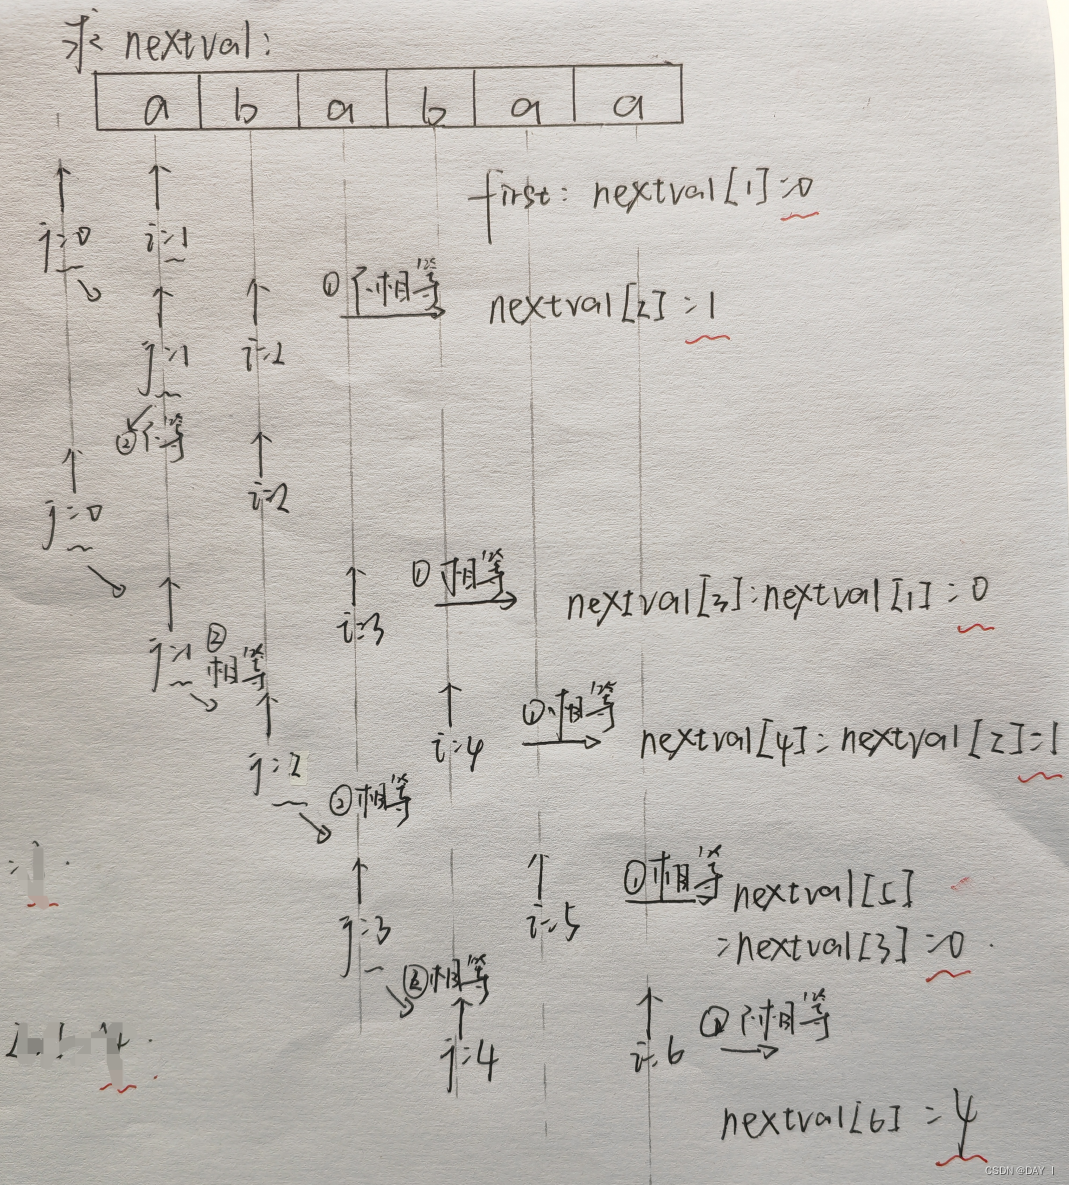 求 nextval:
a b a b a a
first: nextval[1]=0
j=0 i=1
① 不相等 nextval[2]=1
j=1 i=2
②不等
j=0 i=2
① 相等 nextval[3]=nextval[1]=0
j=1 ② i=3
相等
①相等 nextval[4]=nextval[2]=1
j=2 i=4
②相等
①相等 nextval[5]
j=3 i=5
=nextval[3]=0
②相等
①不相等
j=4 i=6
nextval[6]=4
CSDN @DAY_I